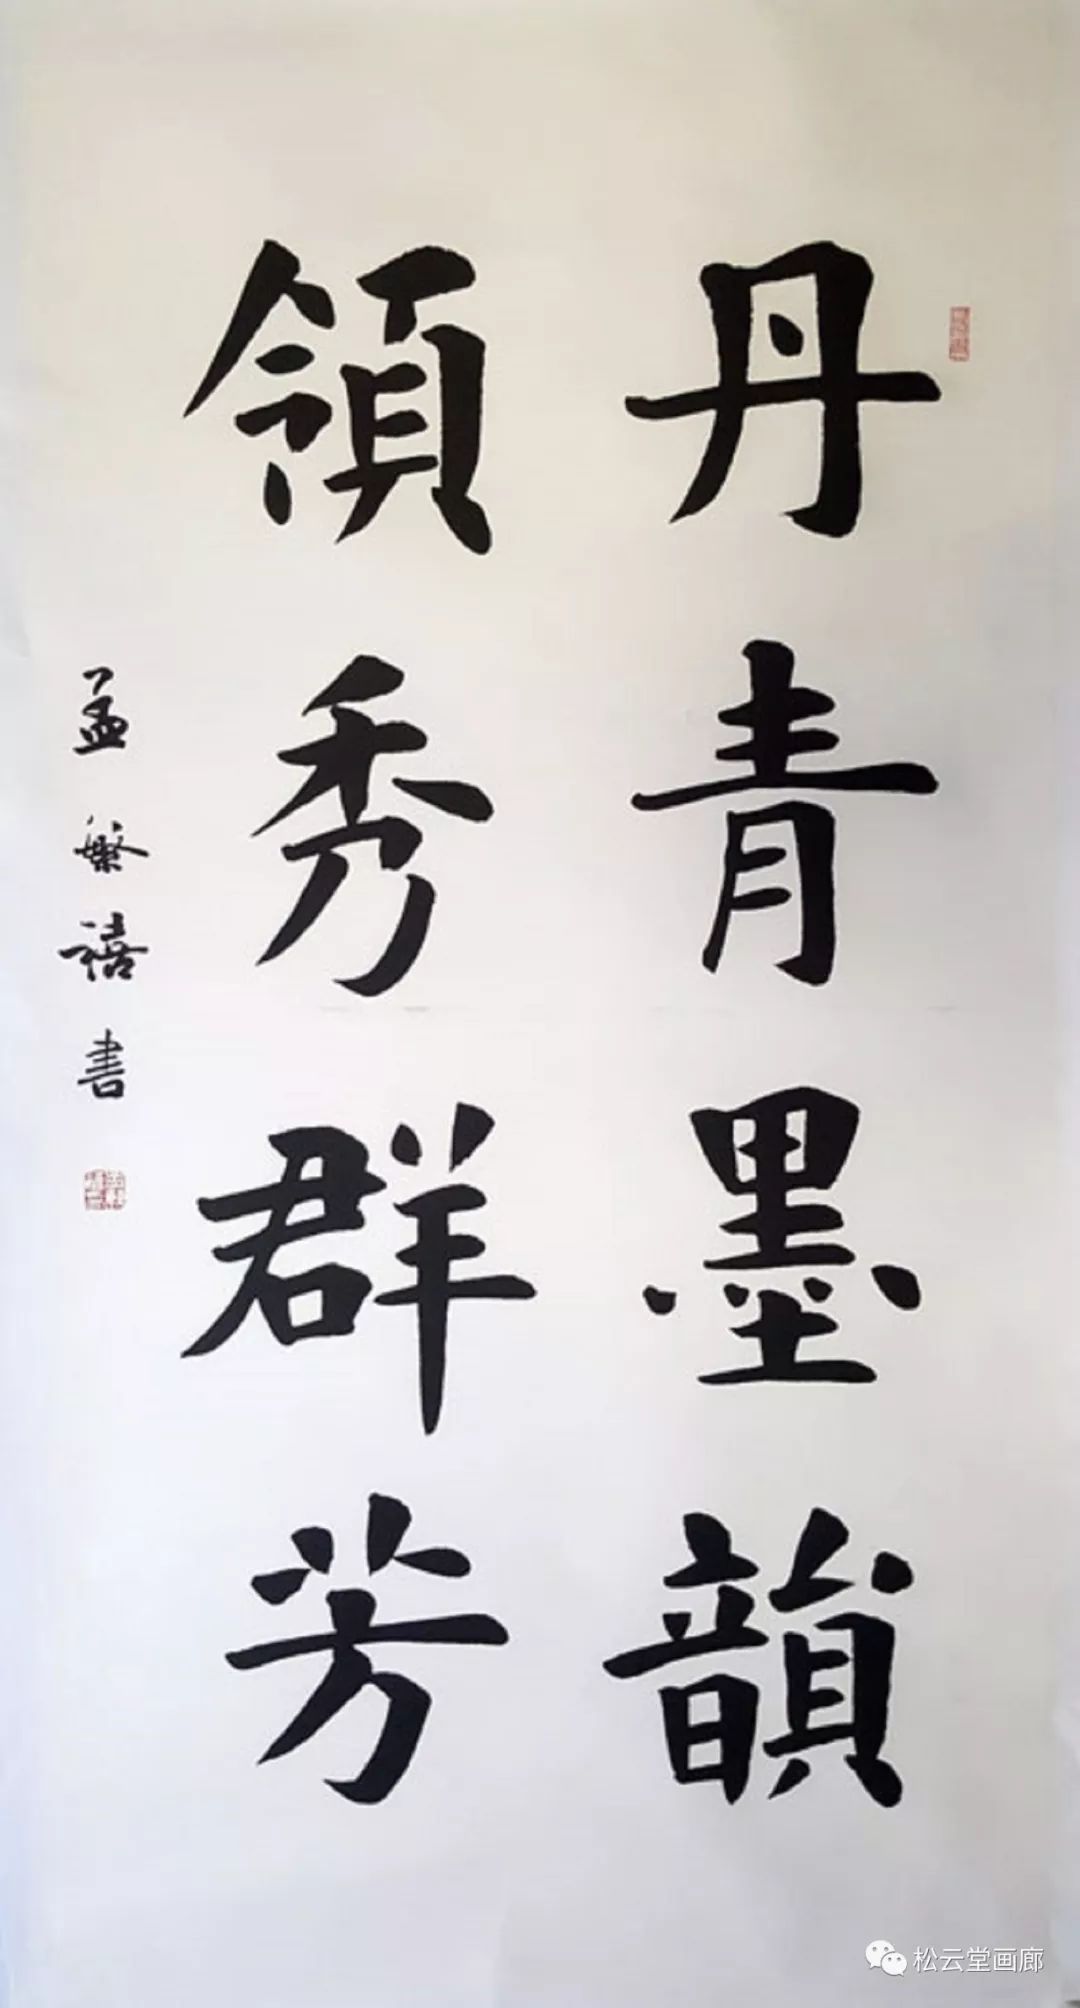 丹青墨韻
領秀群芳
孟繁禧書
松云堂画廊